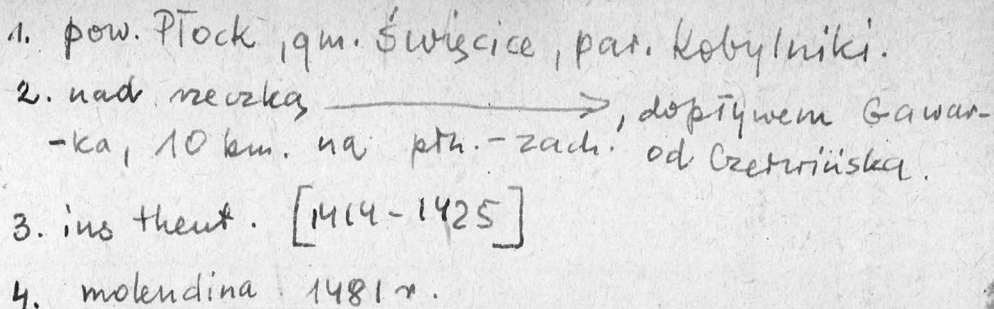 1. pow. Płock, gm. Święcice, par. Kobylniki.
2. nad rzeczką ⟶, dopływem Gawar-
-ka, 10 km. na płn.-zach. od Czerwińska.
3. ius theut. [1414-1425]
4. molendina 1481 r.